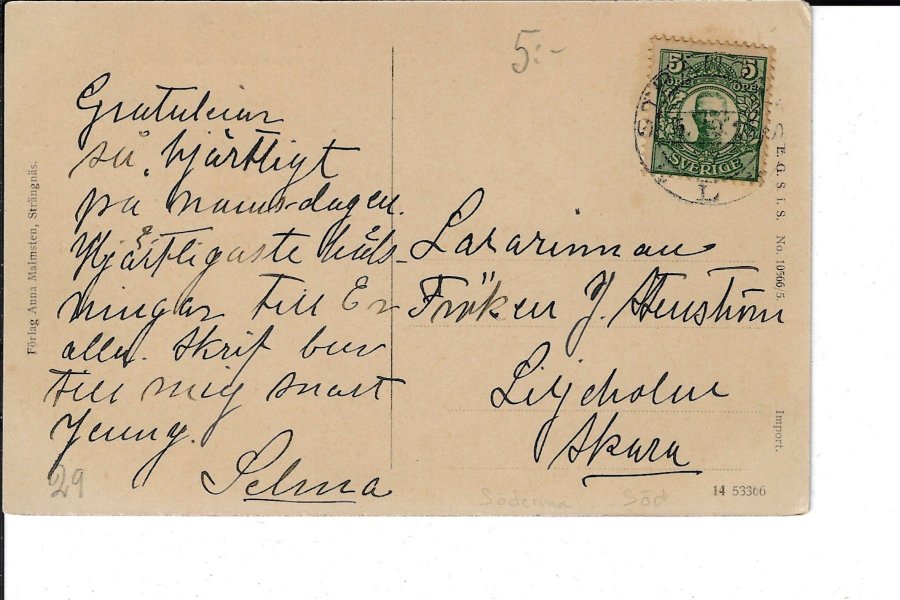 5:-
5 5
ÖRE ÖRE
SVERIGE
Gratulerar
så hjärtligt
på namnsdagen.
Hjärtligaste häls-
ningar till Er
alla. Skrif bur
till mig snart
Jenny.
Selma
Lärarinnan
Fröken J. Stenström
Liljeholm
Skara
Förlag Anna Malmsten, Strängnäs.
E. G. S. i. S. No. 10566/5.
Import.
29
Söderma Söd
14 53366